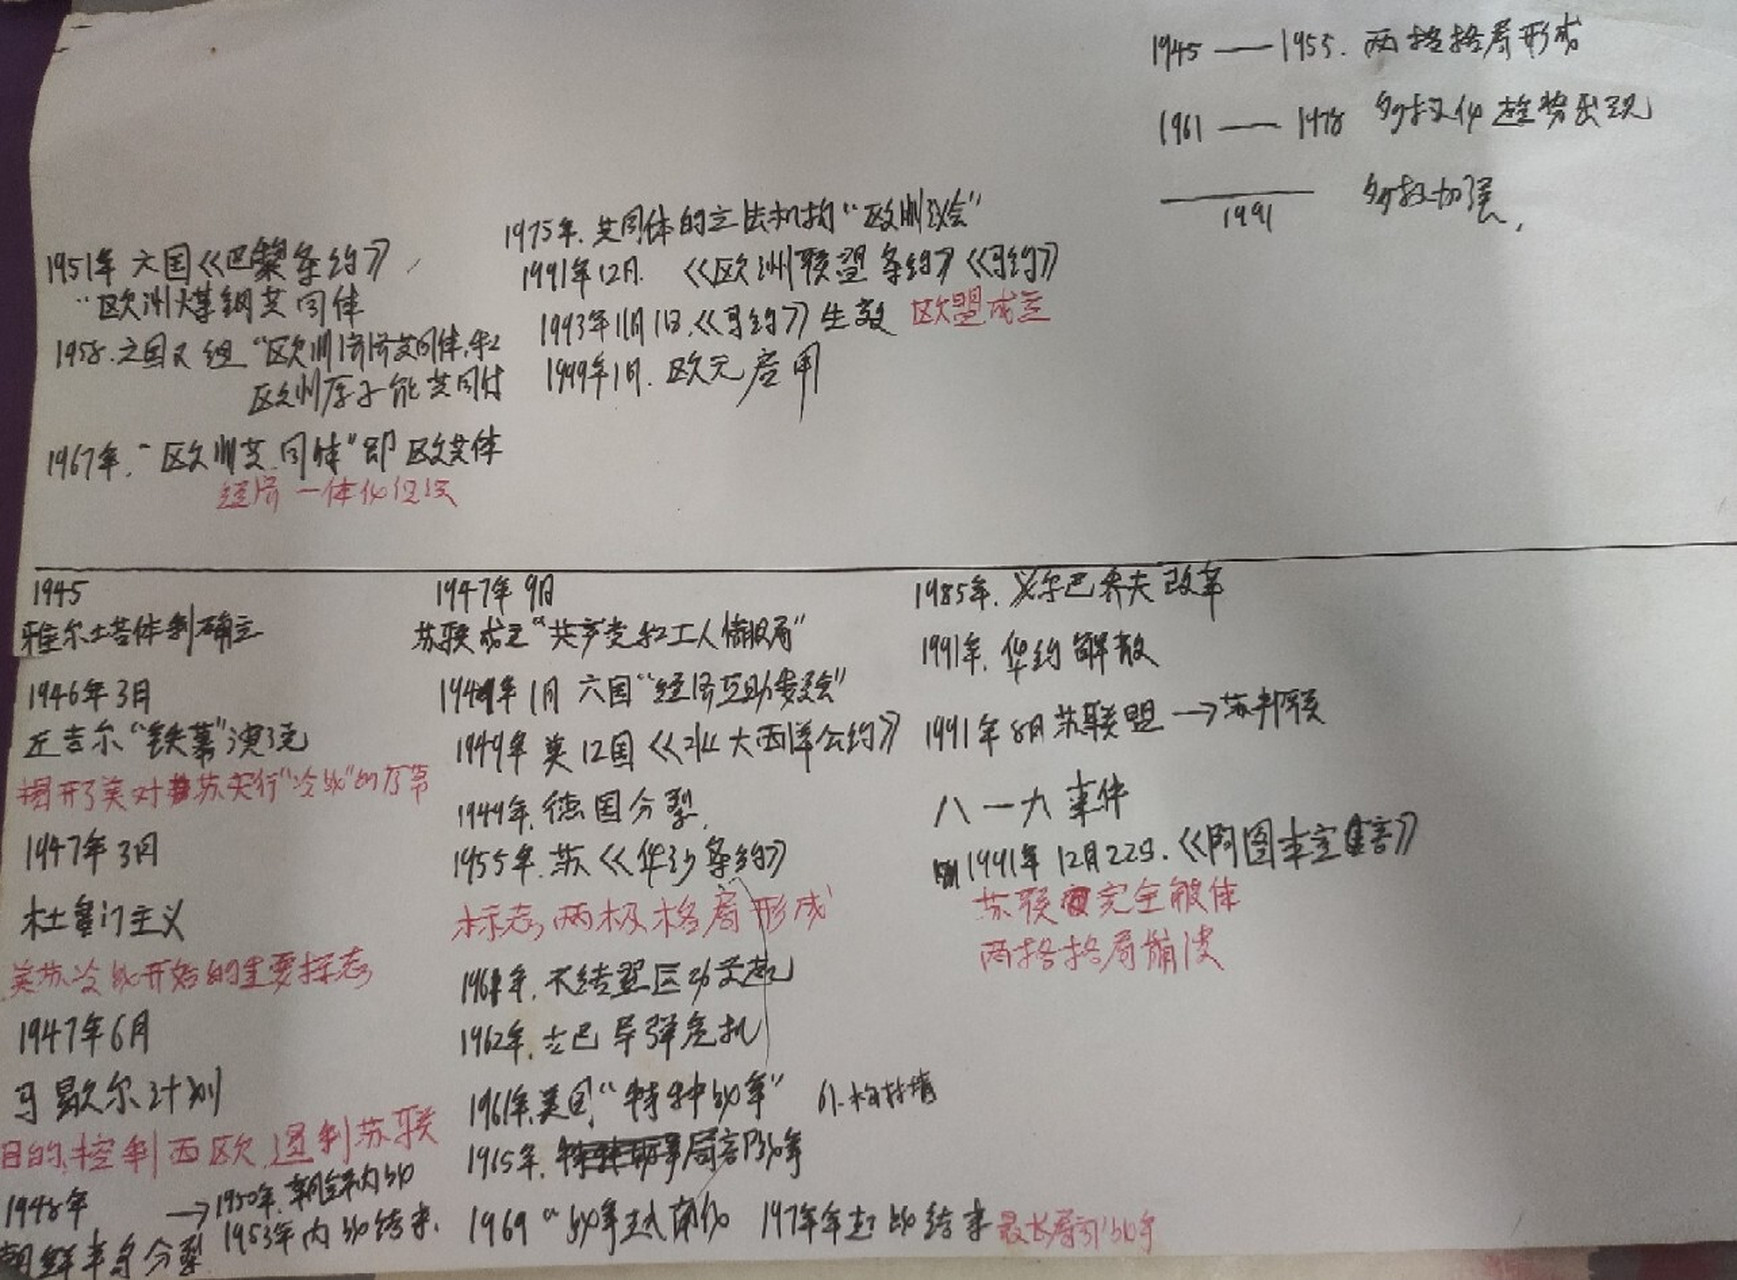 1945 —— 1955. 两格格局形成
1961 —— 1978 多极化趋势出现
—— 1991 多极加强,
1951年 六国《巴黎条约》
"欧洲煤钢共同体
1958. 六国又组"欧洲经济共同体,和
欧洲原子能共同体
1967年. "欧洲共同体"即欧共体
经济一体化
1975年. 共同体的立法机构"欧洲议会"
1991年12月. 《欧洲联盟条约》《马约》
1993年11月1日.《马约》生效 欧盟成立
1999年1月. 欧元启用
1945
雅尔士塔体制确立
1946年3月
丘吉尔"铁幕"演说
揭开了美对苏实行"冷战"的序幕
1947年3月
杜鲁门主义
美苏冷战开始的重要标志
1947年6月
马歇尔计划
目的,控制西欧 遏制苏联
1948年
朝鲜半岛分裂
→1950年.朝鲜内战
1953年内战结束.
1947年9月
苏联成立"共产党和工人情报局"
1949年1月 六国"经济互助委员会"
1949年 美12国《北大西洋公约》
1949年.德国分裂,
1955年.苏《华沙条约》
标志,两极格局形成
1961年.不结盟区动兴起
1962年.古巴导弹危机
1961年.美国"特种战争"
1965年. 局部战争
1969"战争越南化 197年年越战结束 最长局部战争
1985年. 戈尔巴乔夫改革
1991年. 华约解散
1991年8月苏联盟→苏邦联
八一九事件
1991年12月22日.《阿图木宣言》
苏联完全解体
两格格局崩溃